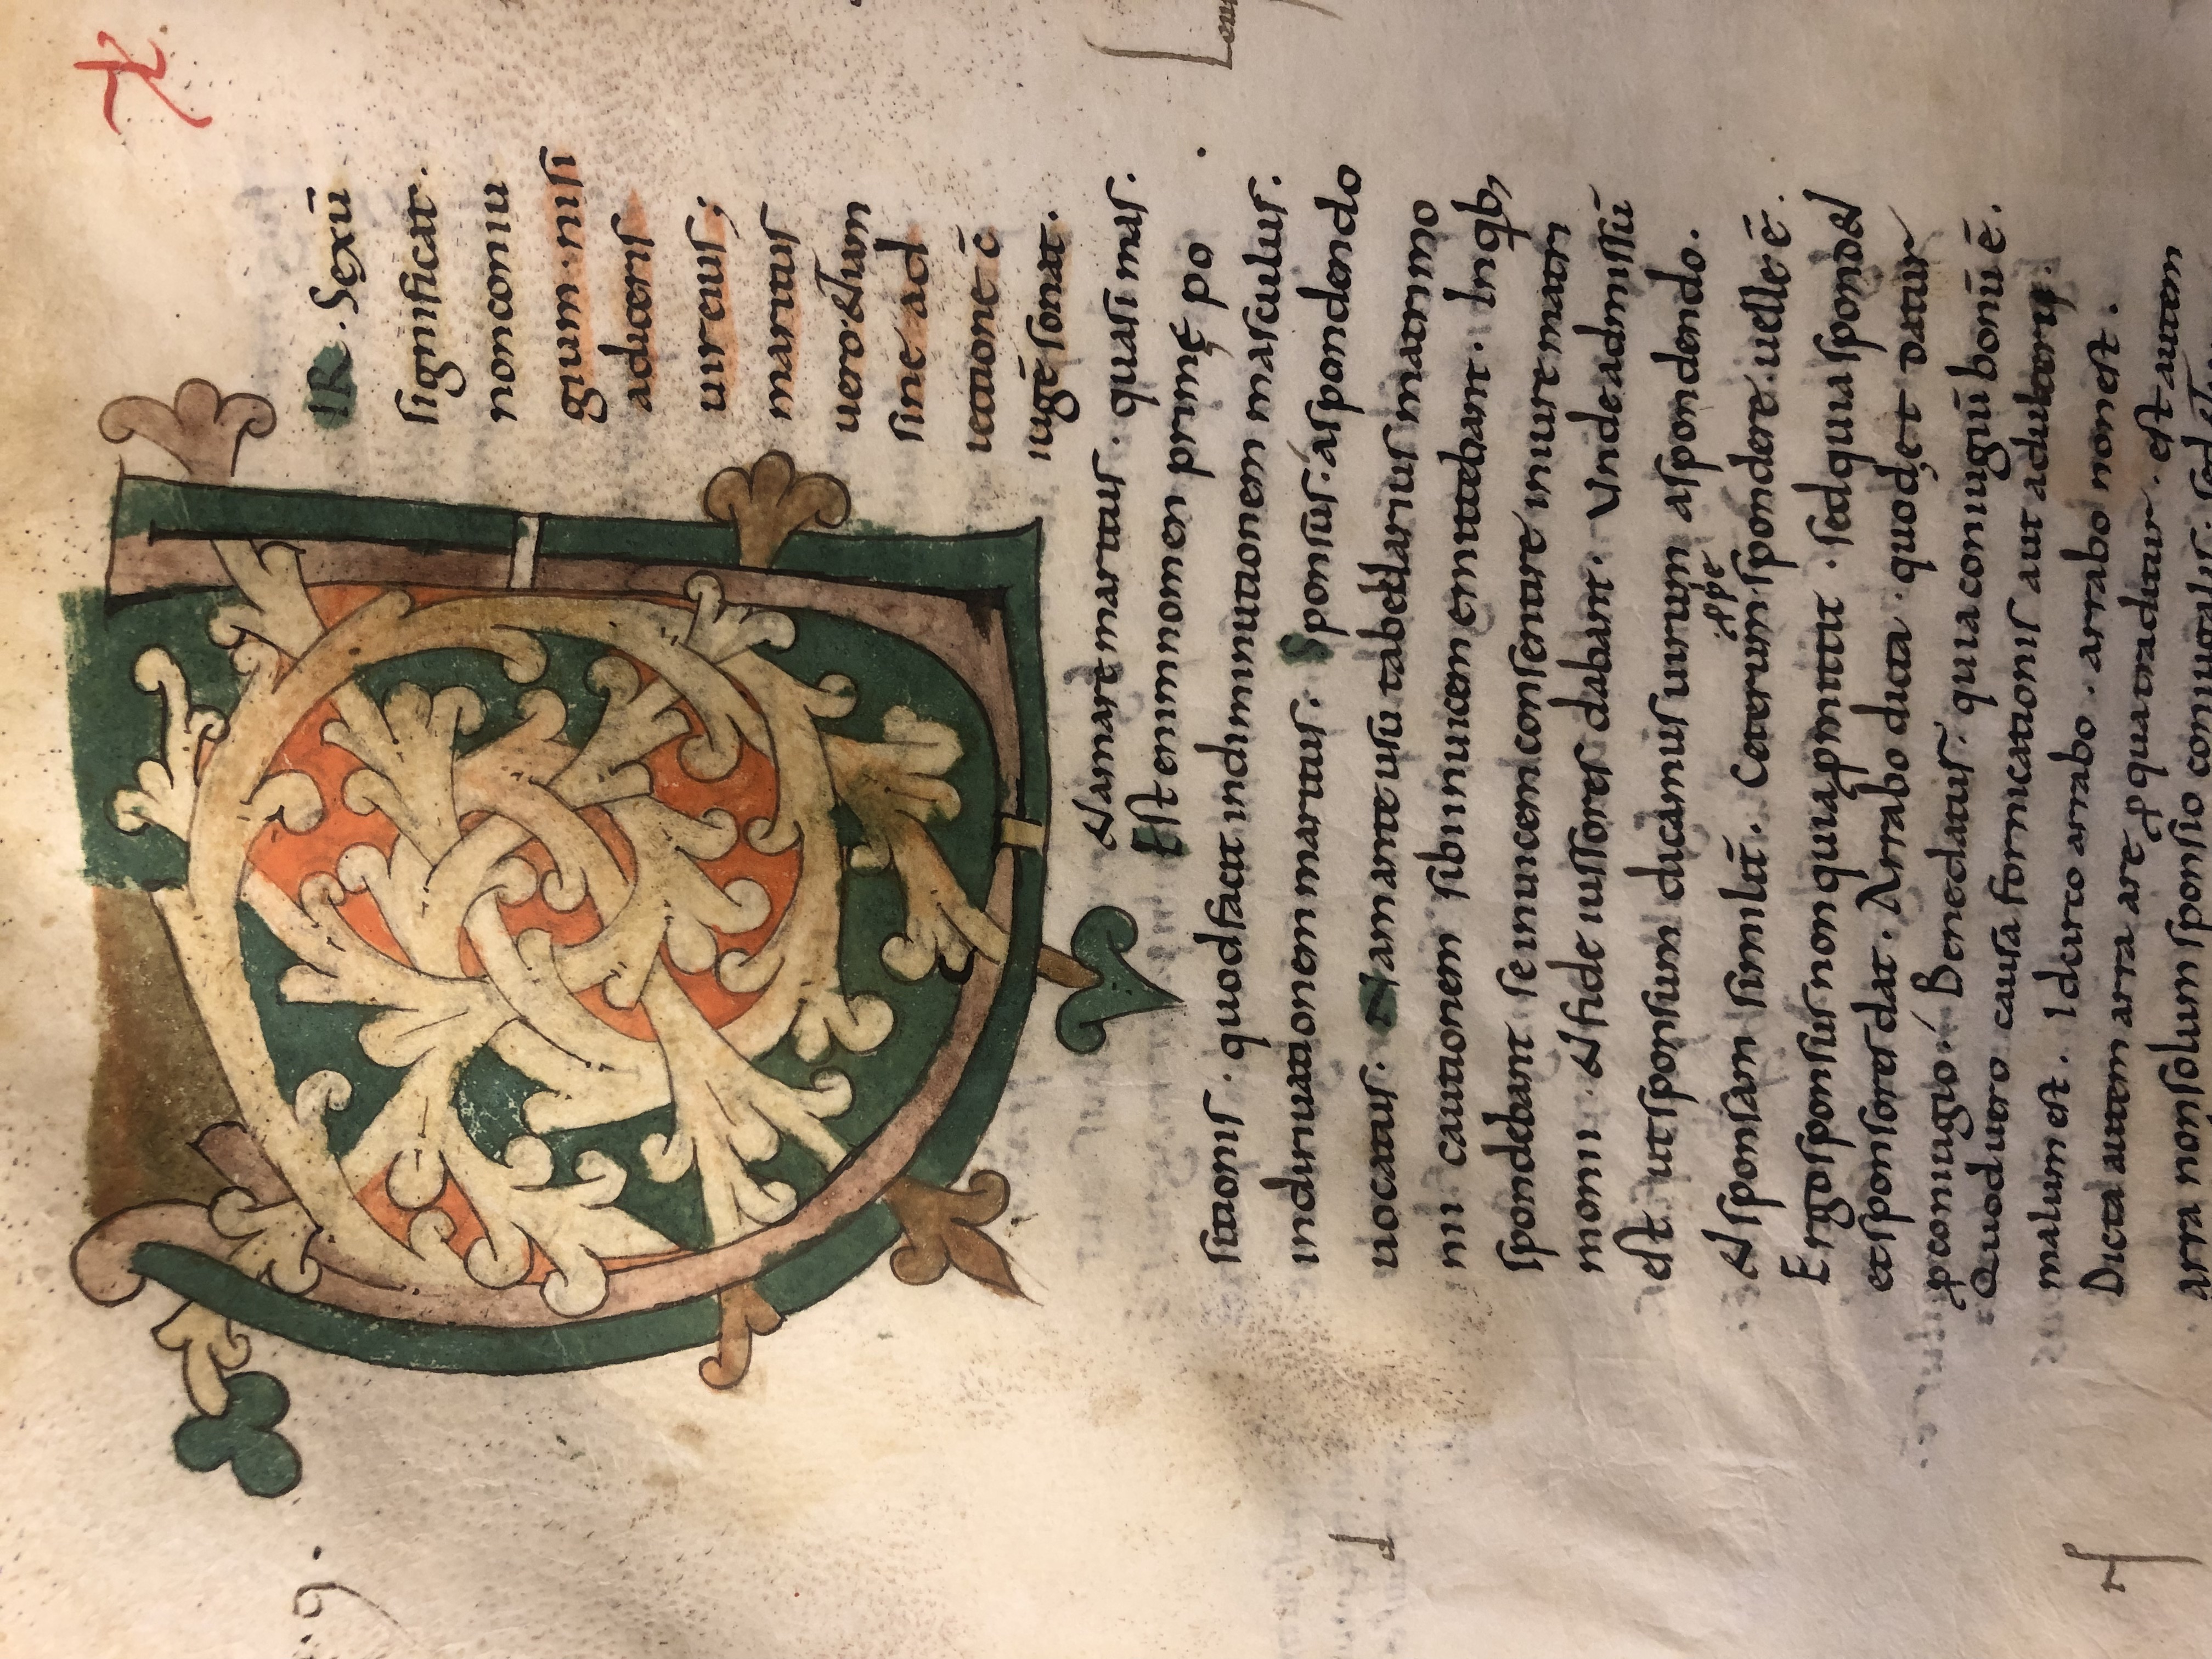 VIR. Sexū
significat.
nonconiu
gium. nisi
adieceris
uir eius;
maritus
uero. etiam
sine ad
iectione c̄
iugē sonat.
Nam are maritus. quasi mas.
Est enim nomen primę po
sitionis. quod facit indiminutionem masculus.
indiriuationem maritus. Sponsus. áspondendo
uocatus. Nam ante usū tabellarius matrimo
nii cautionem sibi inuicem emittebant. In qb;
spondebant se inuicem consentire iniure matri
monii. & fide iussores dabant. Vnde admissū
est ut sponsum dicamus uirum aspondendo.
& sponsam similit̄. Ceterum ꝓppe spondere. uelle ē.
Ergo sponsus non quia ꝓmittit. sed quia spondet
et sponsores dat. Arrabo dicta. quod et datur
ꝓ coniugio. Bene datur. quia coniugiū bonū ē.
Quod uero causa fornicationis aut adulterii.
malum est. Idcirco arrabo. arrabo non est.
Dicta autem arra a re ꝓ qua traditur. est autem
arra non solum sponsio coniugalis. sed